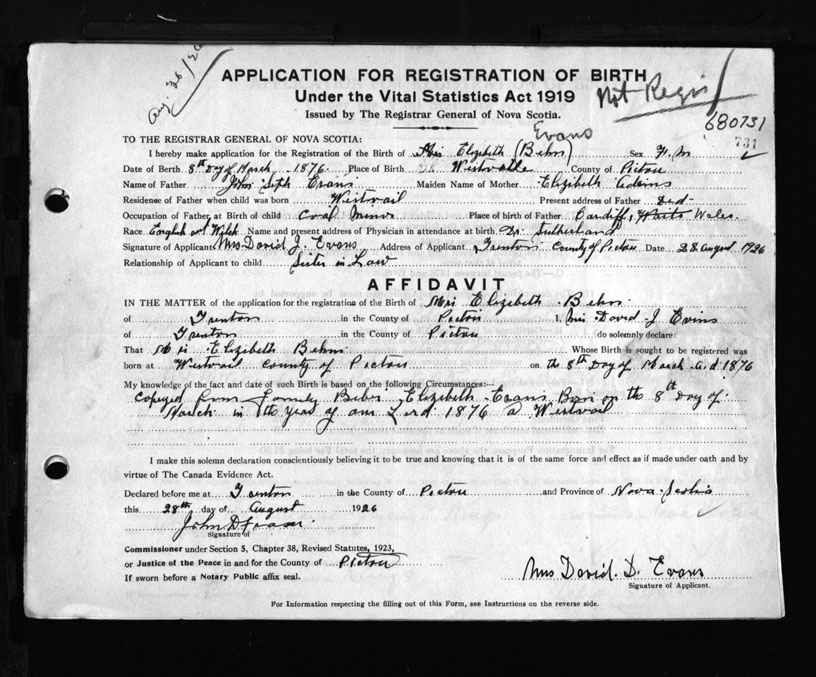 Aug 28/26
APPLICATION FOR REGISTRATION OF BIRTH
Not Regis
Under the Vital Statistics Act 1919
Issued by The Registrar General of Nova Scotia.
680731
731
Evans
TO THE REGISTRAR GENERAL OF NOVA SCOTIA:
I hereby make application for the Registration of the Birth of Mrs Elizabeth (Behm) Sex
Date of Birth 8th Day of March 1876. Place of Birth Westville County of Pictou
Name of Father John Seth Evans Maiden Name of Mother Elizibeth Adams
Residense of Father when child was born Westvail Present address of Father Ded-
Occupation of Father, at Birth of child Coal Miner Place of birth of Father Cardiff, Wales.
Race English and Welsh Name and present address of Physician in attendance at birth Dr. Sutherland
Signature of Applicant Mrs David J. Evans Address of Applicant Trenton County of Pictou Date 28 August 1926
Relationship of Applicant to child Sister in Law
AFFIDAVIT
IN THE MATTER of the application for the registration of the Birth of Mrs Elizibeth Behm
of Trenton in the County of Pictou I, Mrs David J Evins
of Trenton in the County of Pictou do solemnly declare:
That Mrs Elizibeth Behm Whose Birth is sought to be registered was
born at Westvail County of Pictou on the 8th Day of March A.d. 1876
My knowledge of the fact and date of such Birth is based on the following Circumstances:—
Copeyed from Family Bibi Elizibeth Evans Born on the 8th Day of
March in the year of our Lord 1876 a Westvail
I make this solemn declaration conscientiously believing it to be true and knowing that it is of the same force and effect as if made under oath and by
virtue of The Canada Evidence Act.
Declared before me at Trenton in the County of Pictou and Province of Nova Scotia
this 28th day of August 1926
John D Fraser
Signature of
Commissioner under Section 5, Chapter 38, Revised Statutes, 1923,
or Justice of the Peace in and for the County of Pictou
If sworn before a Notary Public affix seal.
Mrs David D. Evans
Signature of Applicant.
For Information respecting the filling out of this Form, see Instructions on the reverse side.